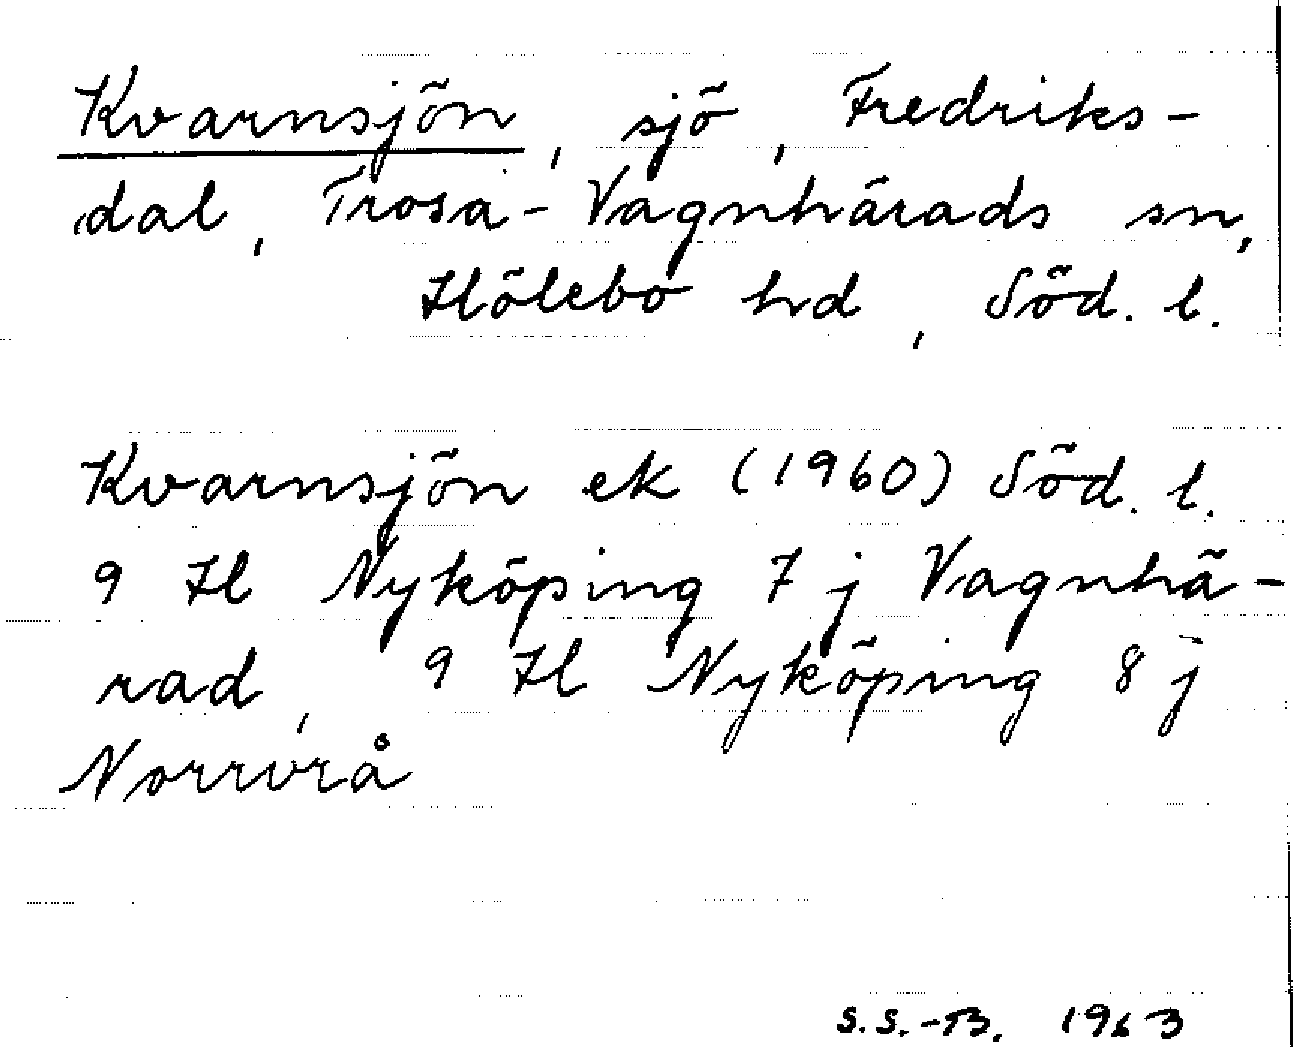 Kvarnsjön, sjö, Fredriks-
dal, Trosa-Vagnhärads sn,
Hölebo hd, Söd. l.
Kvarnsjön ek (1960) Söd. l.
9 H Nyköping 7 j Vagnhä-
rad, 9 H Nyköping 8 j
Norrvrå
S.S.-B. 1963